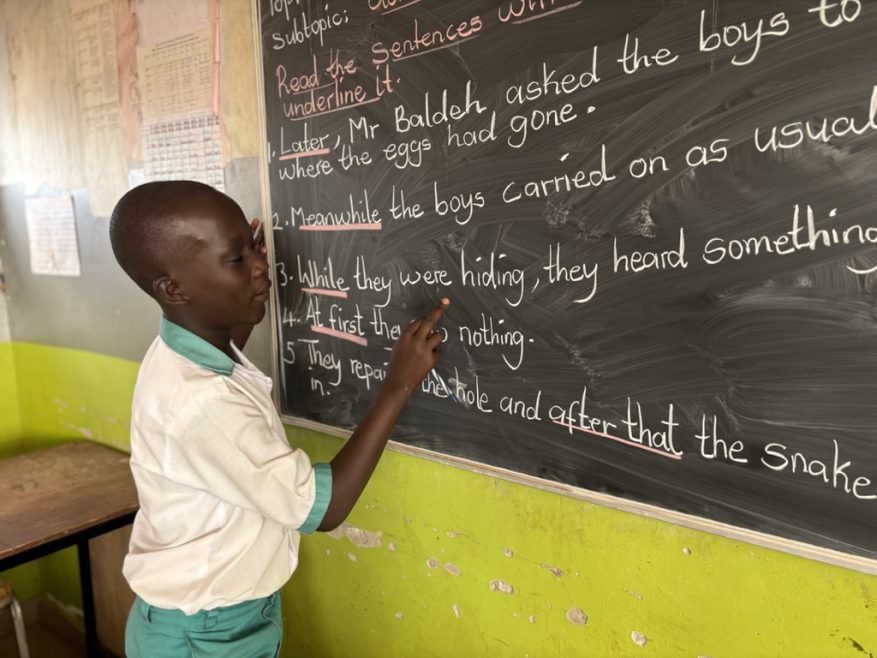 Subtopic:
Read the Sentences
underline it.
1. Later, Mr Baldeh asked the boys to
where the eggs had gone.
2. Meanwhile the boys carried on as usual
3. While they were hiding, they heard something
4. At first nothing.
5 They the hole and after that the snake
in.